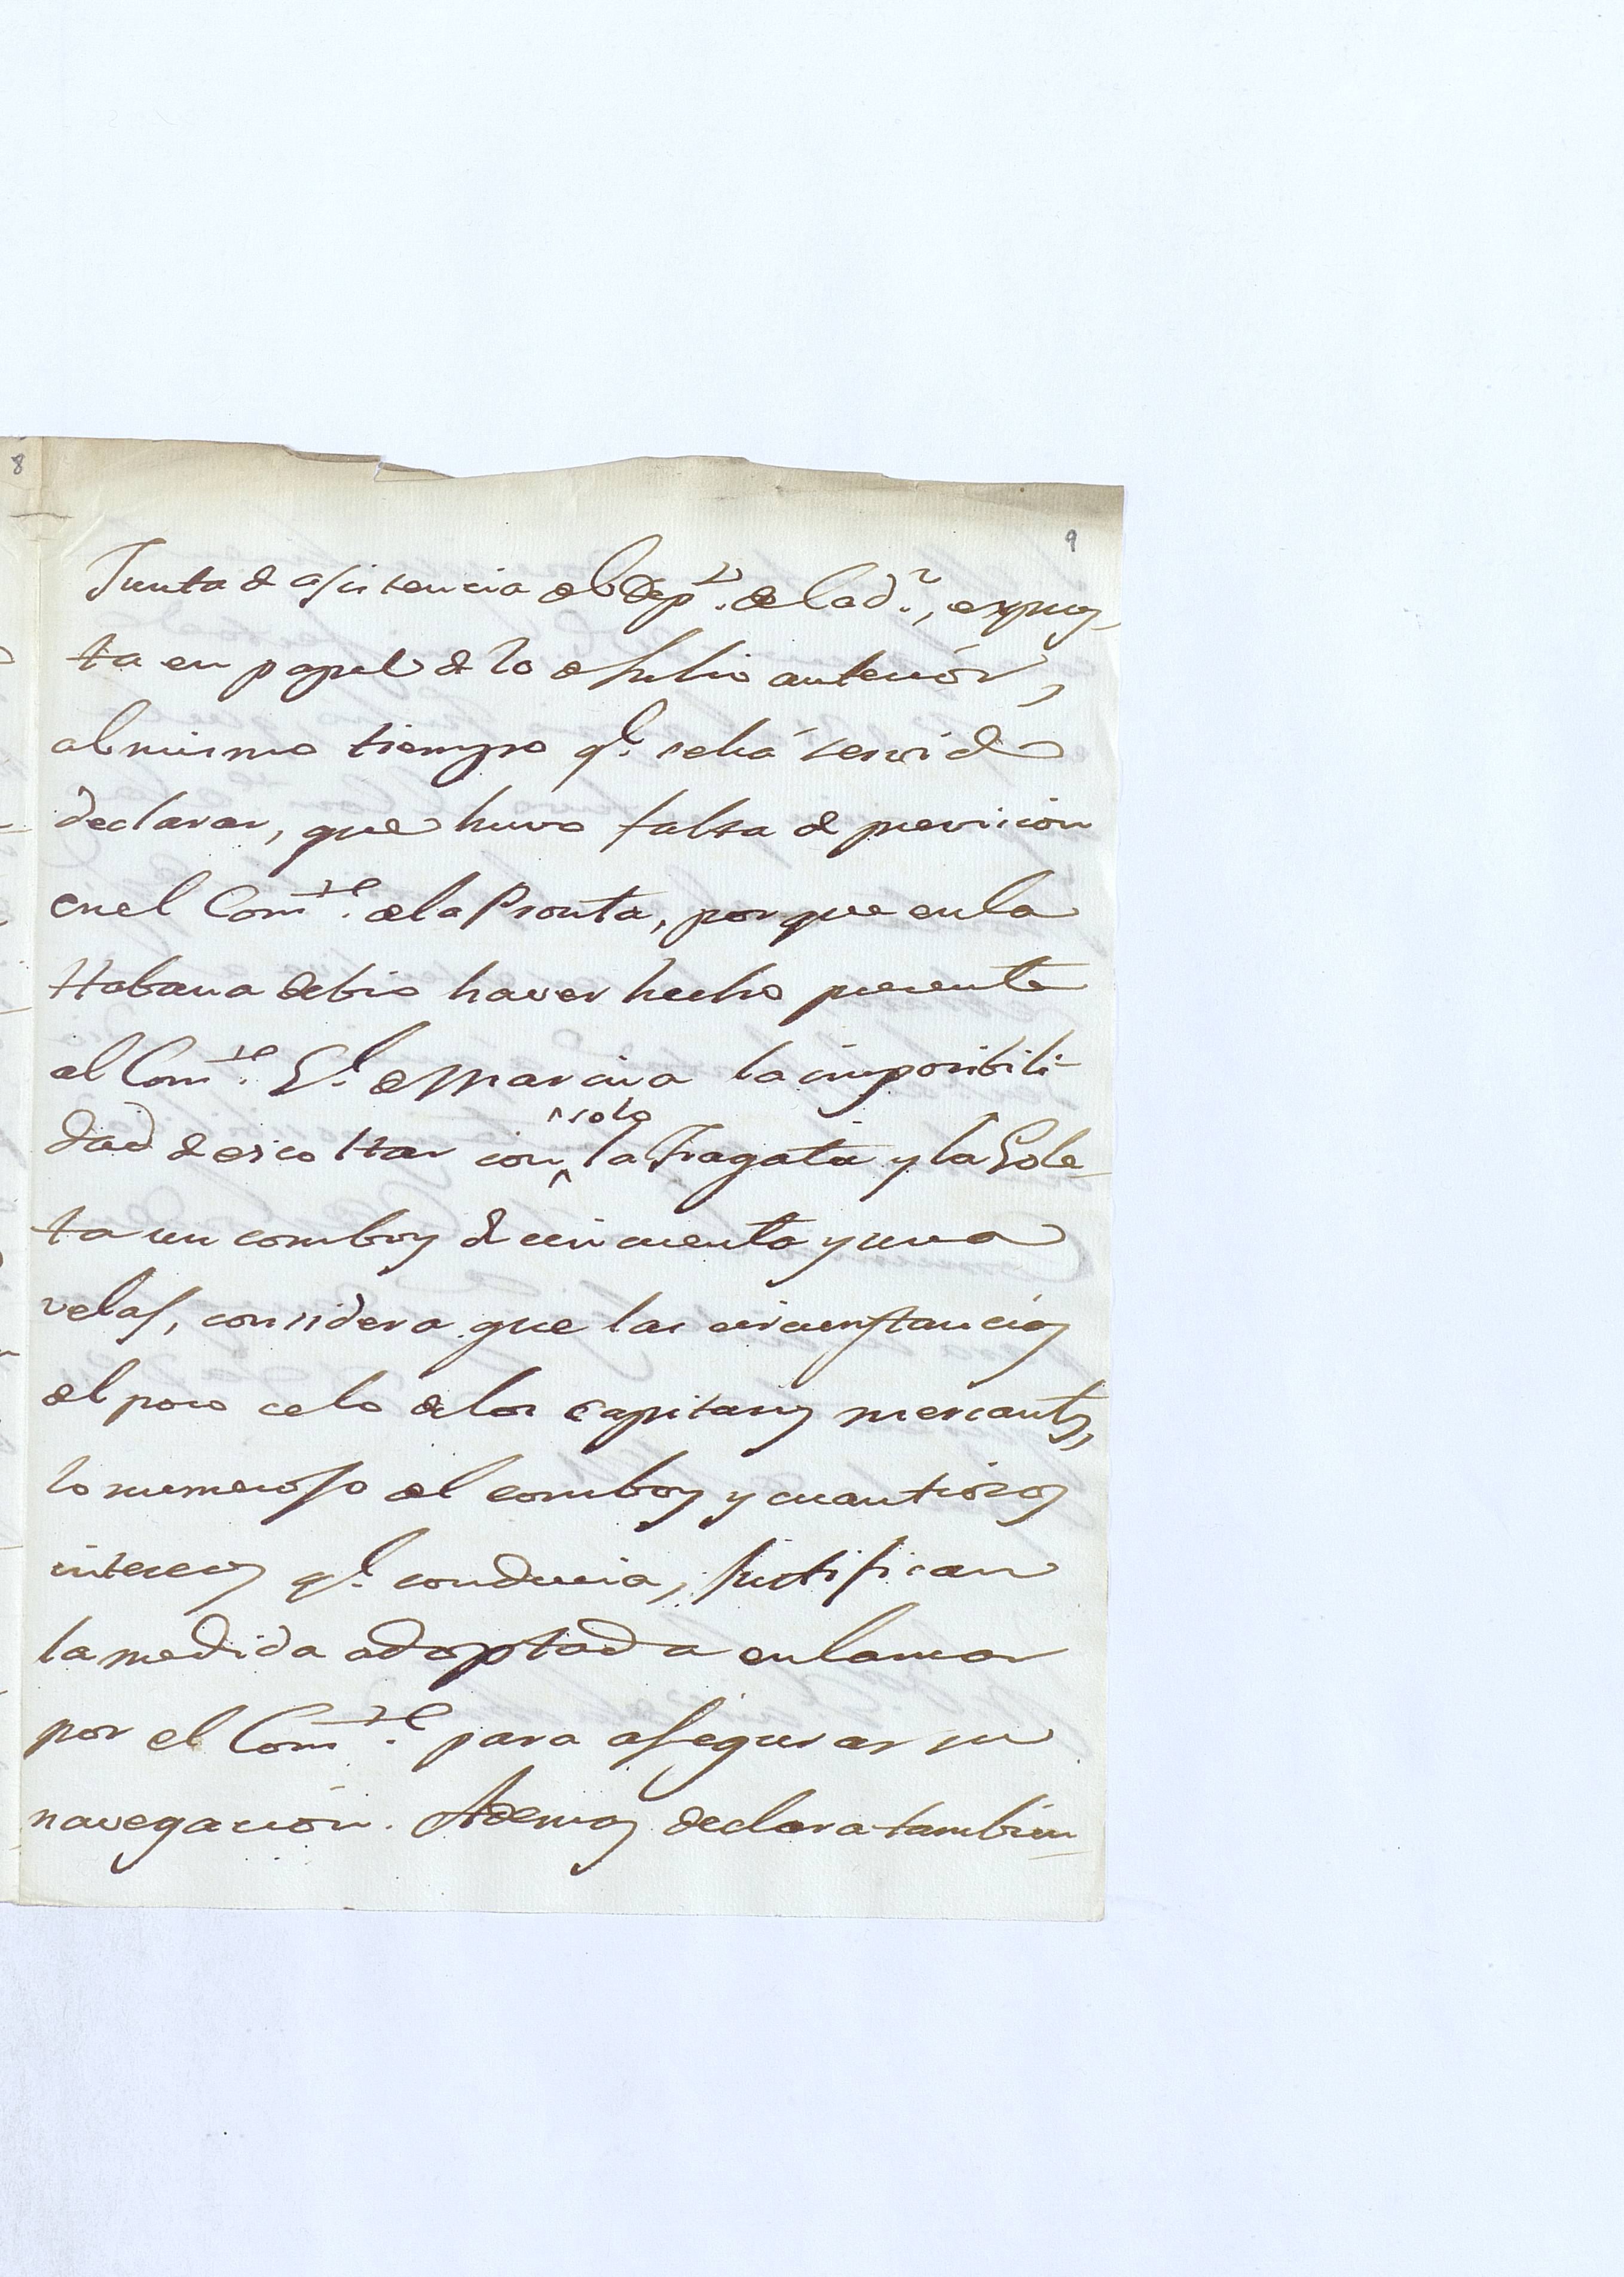 8
9
Junta de asistencia del Dep.to de Cad.z, expues-
ta en papel de 10 de Julio anteriór,
al mismo tiempo q.e se há servido
declarar, que huvo falta de prevision
en el Com.te de la Pronta, porque en la
Habana debio haver hecho presente
al Com.te G.l de Marina la imposibili-
dad de escoltar con la Fragata y la Gole-
^solo
ta un comboy de cincuenta y una
velas, considera que las circunstancias
del poco celo de los capitanes mercantes,
lo numeroso del comboy y cuantiosos
intereses q.e conducia, justifican
la medida adoptada en la mar
por el Com.te para asegurar su
navegación. Ademas declara tambien